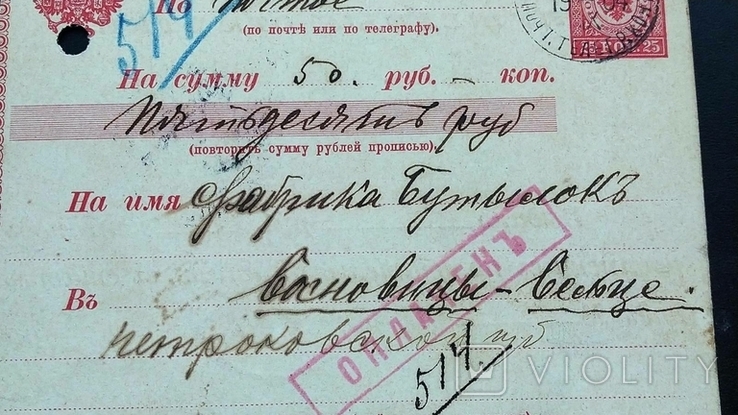 По почте
514
(по почтѣ или по телеграфу).
19 04
На сумму 50. руб. — коп.
Пятьдесять руб
(повторить сумму рублей прописью).
На имя Фабрика Бутылокъ
ОПЛАЧЕНЪ
Въ Сосновицы - Сельце.
петроковской губ
514.
VIOLITY